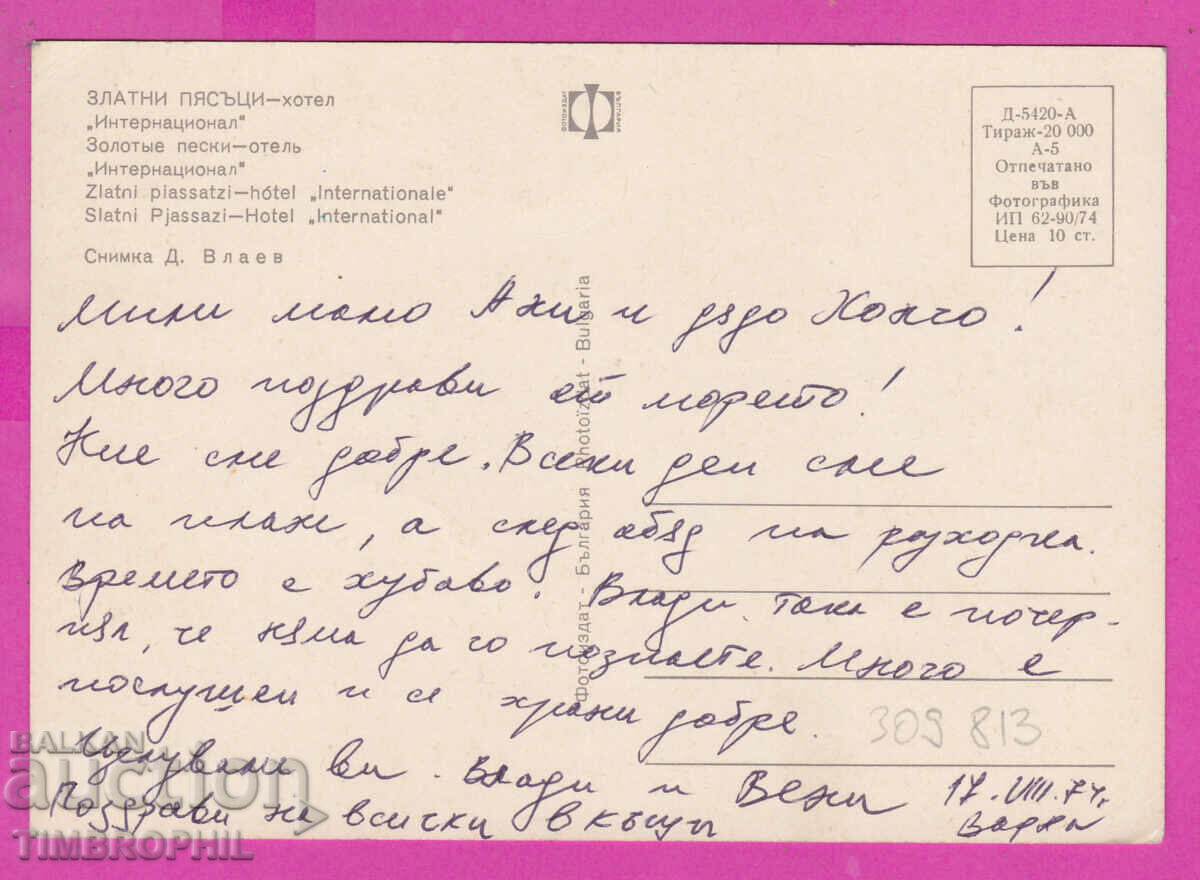 ЗЛАТНИ ПЯСЪЦИ—хотел
„Интернационал"
Золотые пески—отель
„Интернационал"
Zlatni piassatzi—hótel „Internationale"
Slatni Pjassazi—Hotel „International"
Снимка Д. Влаев
ФОТОИЗДАТ
БЪЛГАРИЯ
Д-5420-А
Тираж-20 000
А-5
Отпечатано
във
Фотографика
ИП 62-90/74
Цена 10 ст.
Фотоиздат - България Photoïzdat - Bulgaria
Мили мамо Ани и дядо Кольо!
Много поздрави от морето!
Ние сме добре. Всеки ден сме
на плаж, а след обяд на разходка.
Времето е хубаво. Влади така е почер-
нял, че няма да го познаете. Много е
послушен и се храни добре.
Целуваме ви. Влади и Вени
Поздрави на всички в къщи
17.VIII.74г.
Варна
309 813
BALKAN
auction
TIMBROPHIL